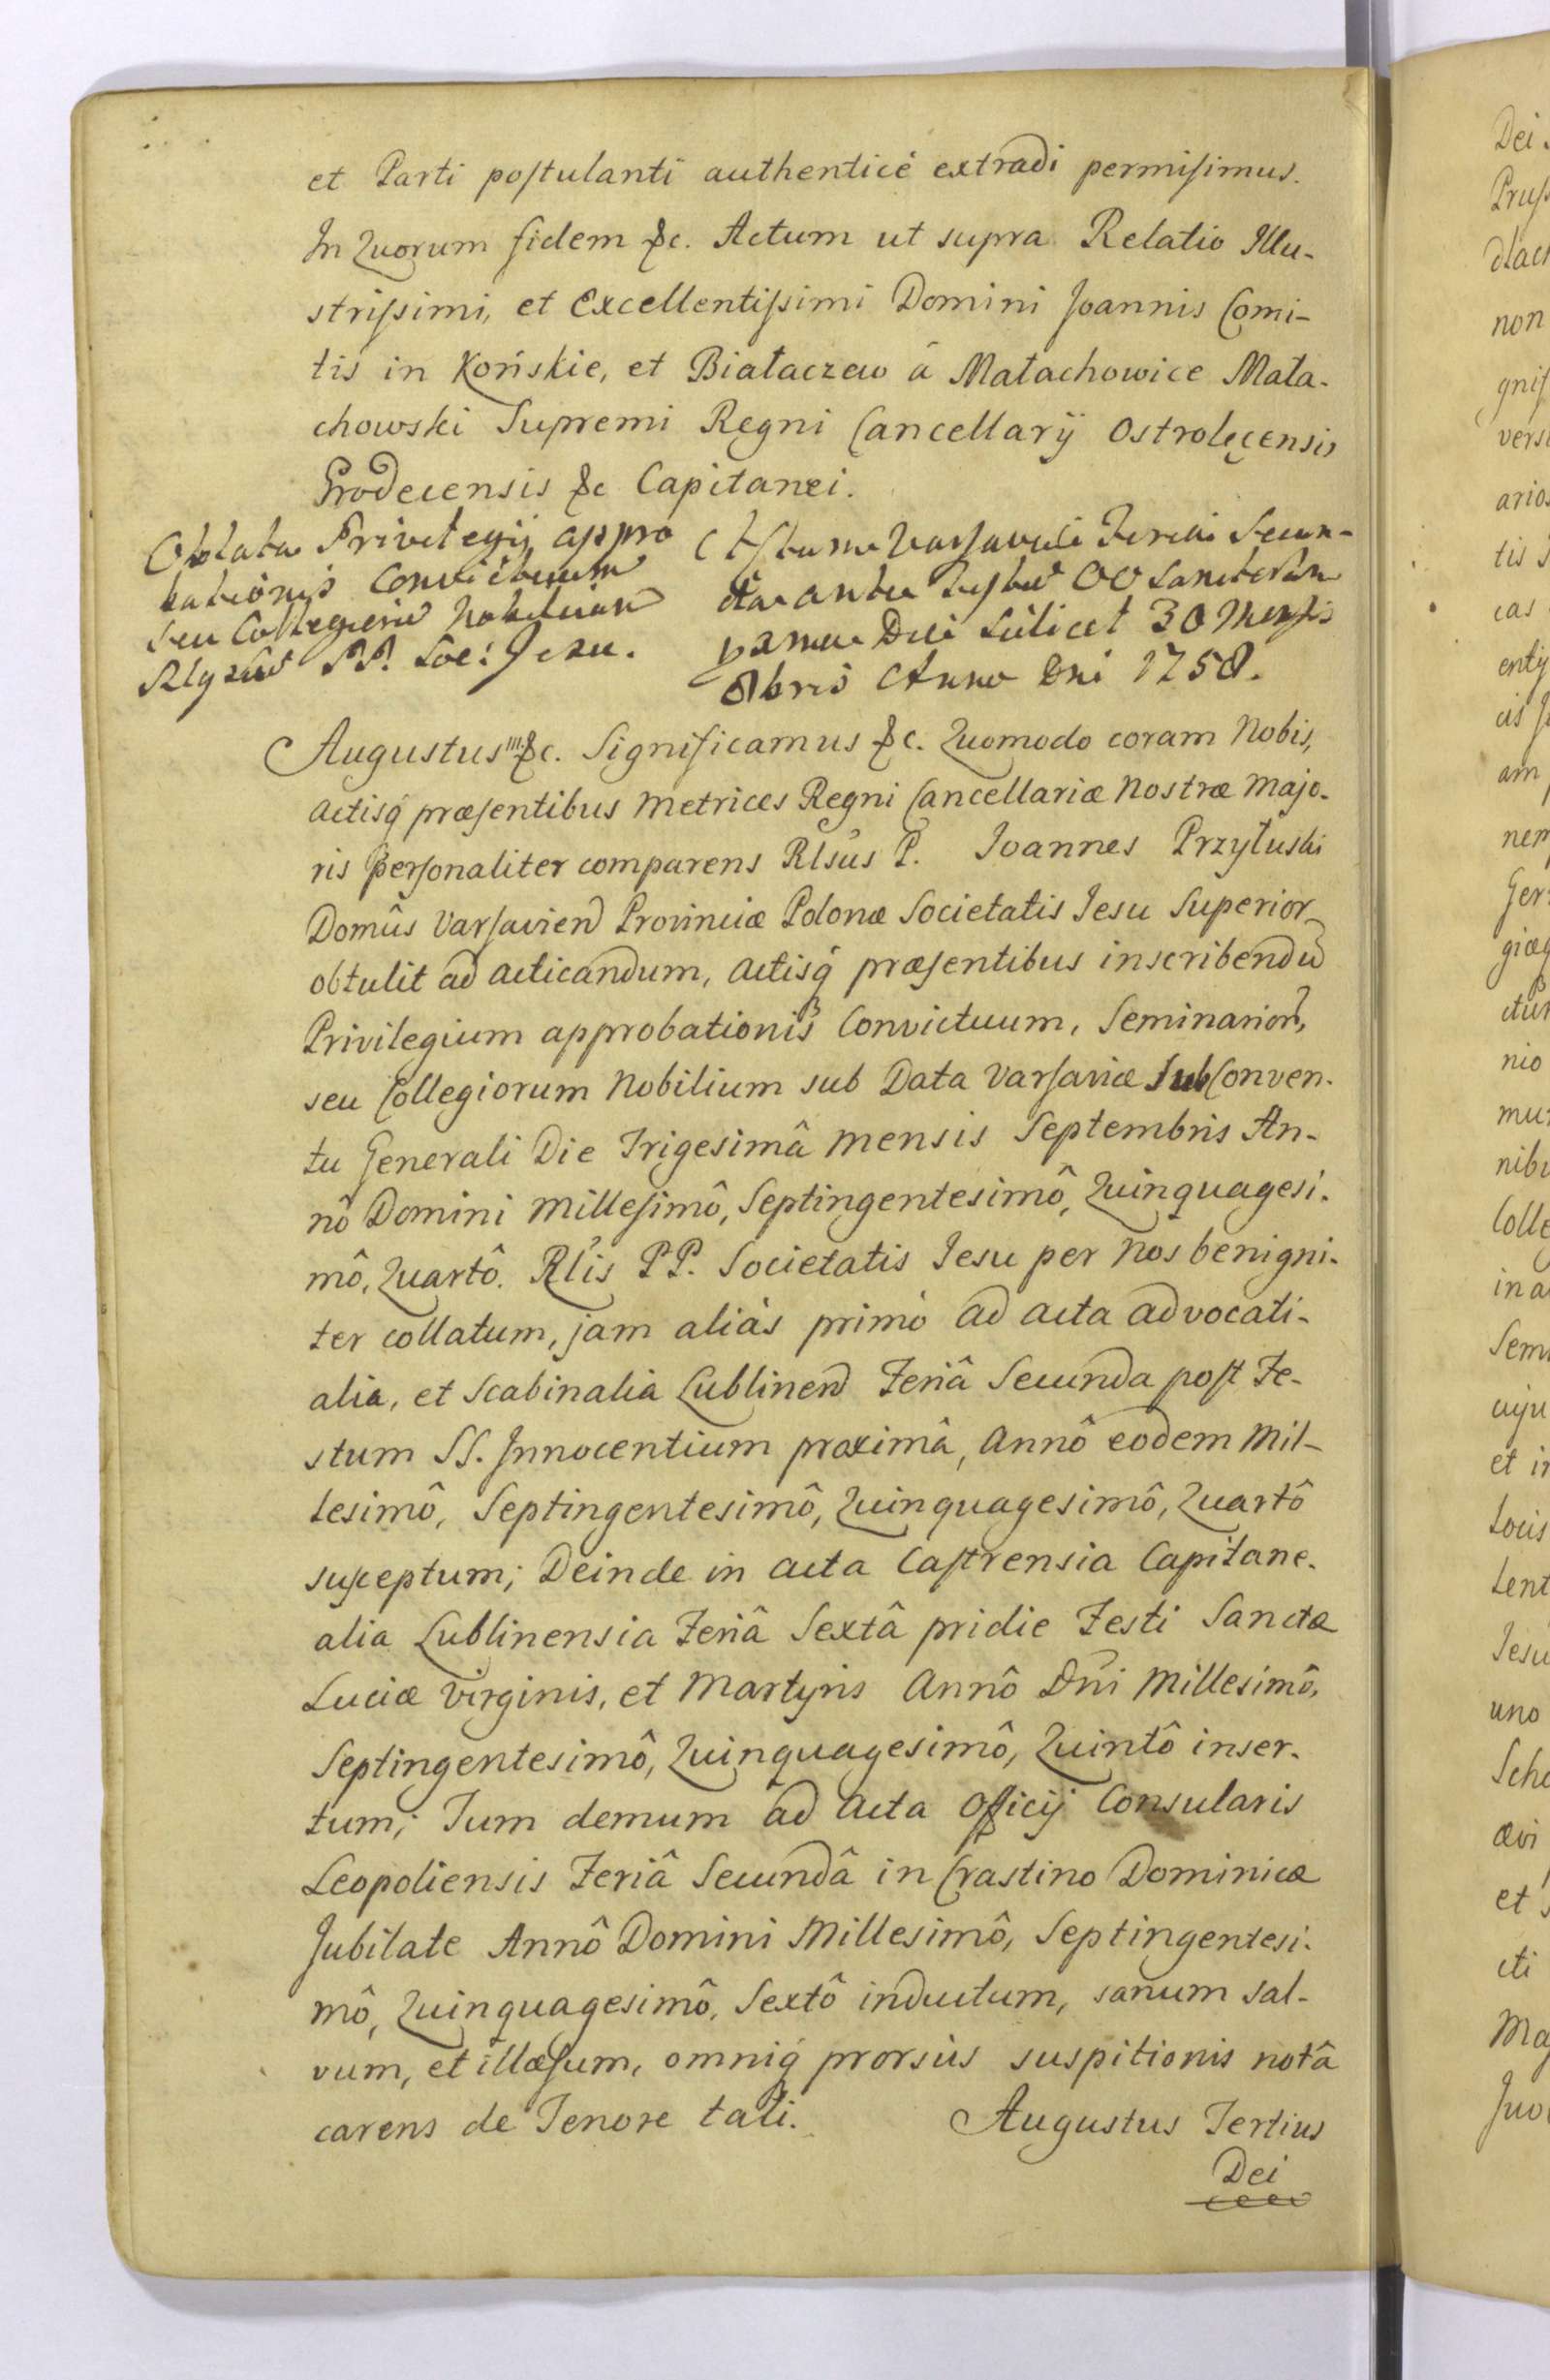 et Parti postulanti authenticè extradi permisimus.
In Quorum fidem &c. Actum ut supra Relatio Illu-
strissimi, et Excellentissimi Domini Joannis Comi-
tis in Końskie, et Białaczew â Małachowice Mała-
chowski Supremi Regni Cancellarÿ Ostrolęcensis
Grodecensis &c Capitanei.
Oblata Privilegij appro
bationis Convictuum
seu Collegiorū Nobilium
Rlgzūs PP. Soc: Jesu.
Actum Varsaviæ Feria Secun-
da ante Festū OO Sanctorum
proxima Die Scilicet 30 Mensis
8bris Anno Dni 1758.
Augustus III &c. Significamus &c. Quomodo coram Nobis,
Actisq́ præsentibus Metrices Regni Cancellariæ Nostræ Majo-
ris personaliter comparens Rlsūs P. Joannes Przyłuski
Domûs Varsavien Provinciæ Polonæ Societatis Jesu Superior
obtulit ad acticandum, Actisq́ præsentibus inscribendū
Privilegium approbationis Convictuum, Seminarior,
seu Collegiorum Nobilium sub Data Varsaviæ Sub Conven-
tu Generali Die Trigesimâ Mensis Septembris An-
nô Domini Millesimô, Septingentesimô, Quinquagesi-
mô, Quartô. Rlis PP. Societatis Jesu per Nos benigni-
ter collatum, jam aliàs primò ad acta advocati-
alia, et Scabinalia Lublinen Feriâ Secunda post Fe-
stum SS. Innocentium proximâ, Annô eodem Mil-
lesimô, Septingentesimô, Quinquagesimô, Quartô
susceptum; Deinde in acta Castrensia Capitane-
alia Lublinensia Feriâ Sextâ pridie Festi Sanctæ
Luciæ Virginis, et Martyris Annô Dni Millesimô,
Septingentesimô, Quinquagesimô, Quintô inser-
tum; Tum demum ad Acta Officij Consularis
Leopoliensis Feriâ Secundâ in Crastino Dominicæ
Jubilate Annô Domini Millesimô, Septingentesi-
mô, Quinquagesimô, Sextô inductum, sanum sal-
vum, et illæsum, omniq́ prorsùs suspitionis notâ
carens de Tenore tali. Augustus Tertius
Dei
Dei
Pruss
non
gniss
versi
ario
tis
cas
am
nem
Ger
nio
mu
nib
Colle
in a
Sem
et i
Locis
uno
Scho
et
cti
Ma